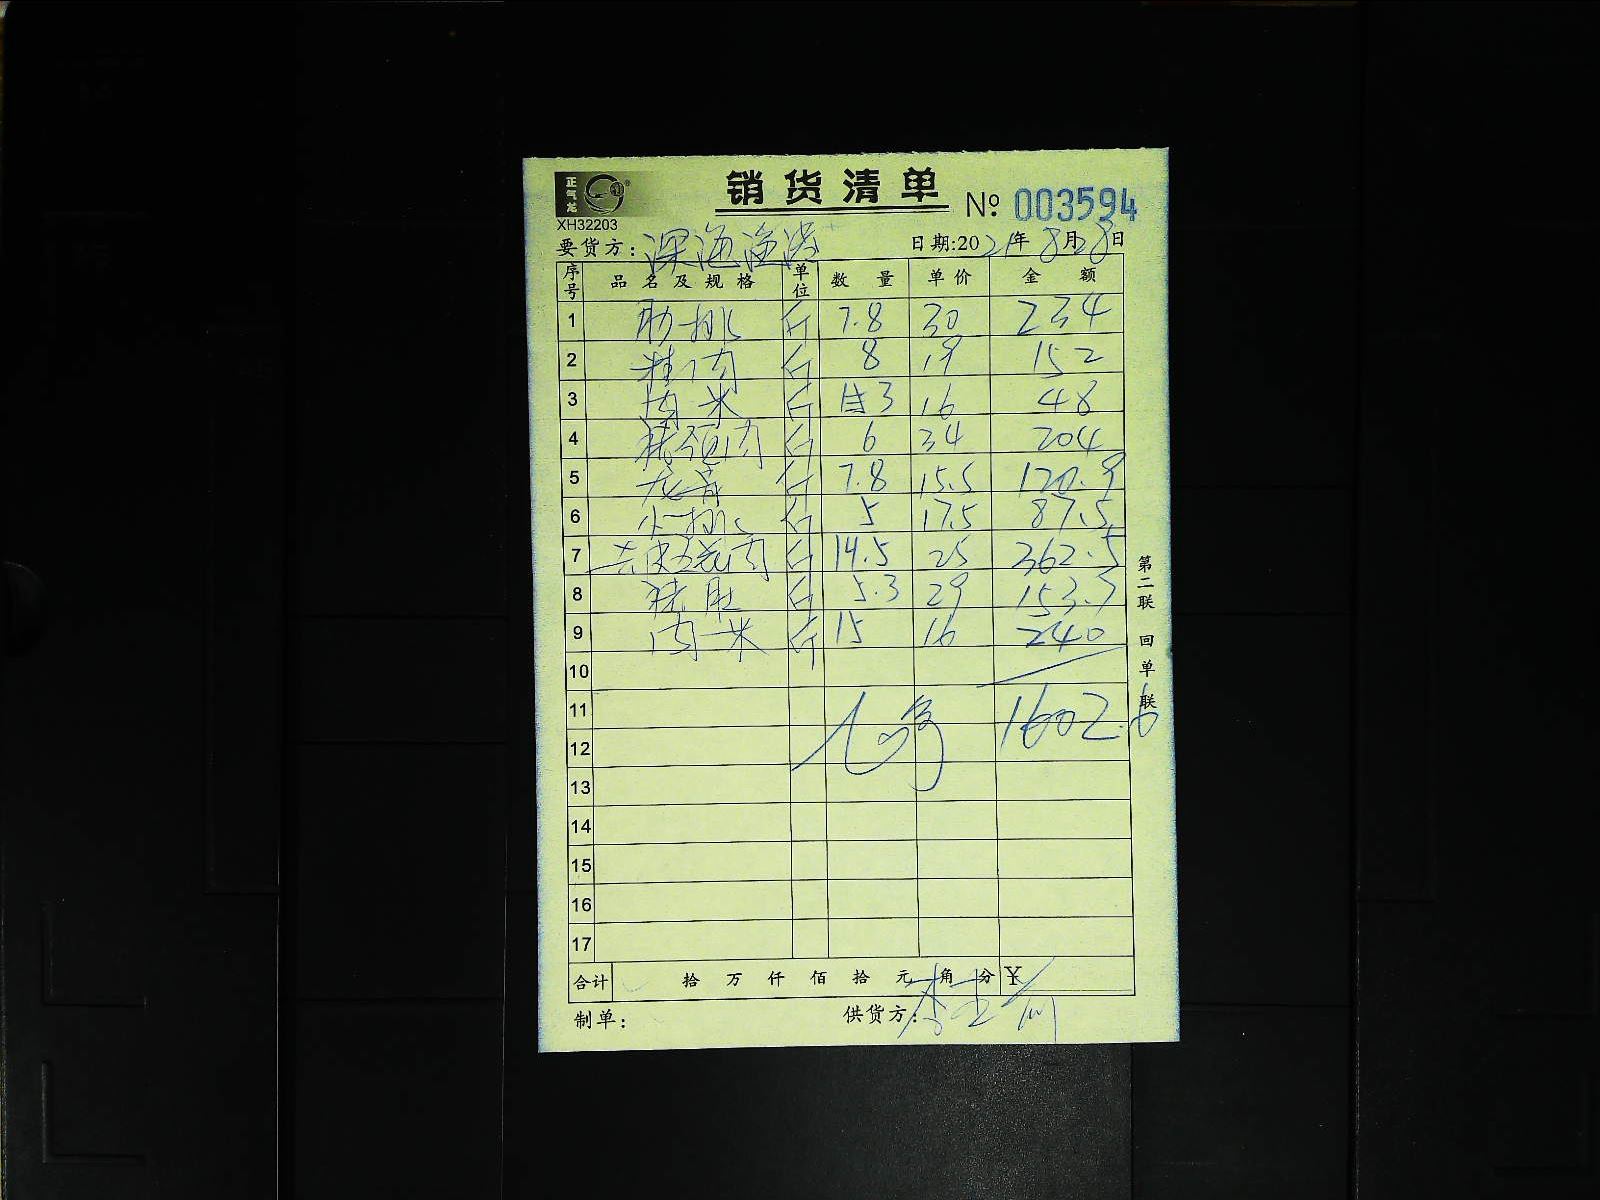 正气龙
销货清单
№ 003594
XH32203
要货方：深海渔港 日期:2021年8月28日
序号 品名及规格 单位 数量 单价 金额
1 肋排 斤 7.8 30 234
2 精肉 斤 8 19 152
3 肉米 斤 3 16 48
4 猪颈肉 斤 6 34 204
5 龙骨 斤 7.8 15.5 120.9
6 小排 斤 5 17.5 87.5
7 去皮五花肉 斤 14.5 25 362.5
8 猪肚 斤 5.3 29 153.7
9 肉米 斤 15 16 240
10
11 1602.6
12
13
14
15
16
17
合计 拾 万 仟 佰 拾 元 角 分 ￥
制单： 供货方：
第二联 回单联